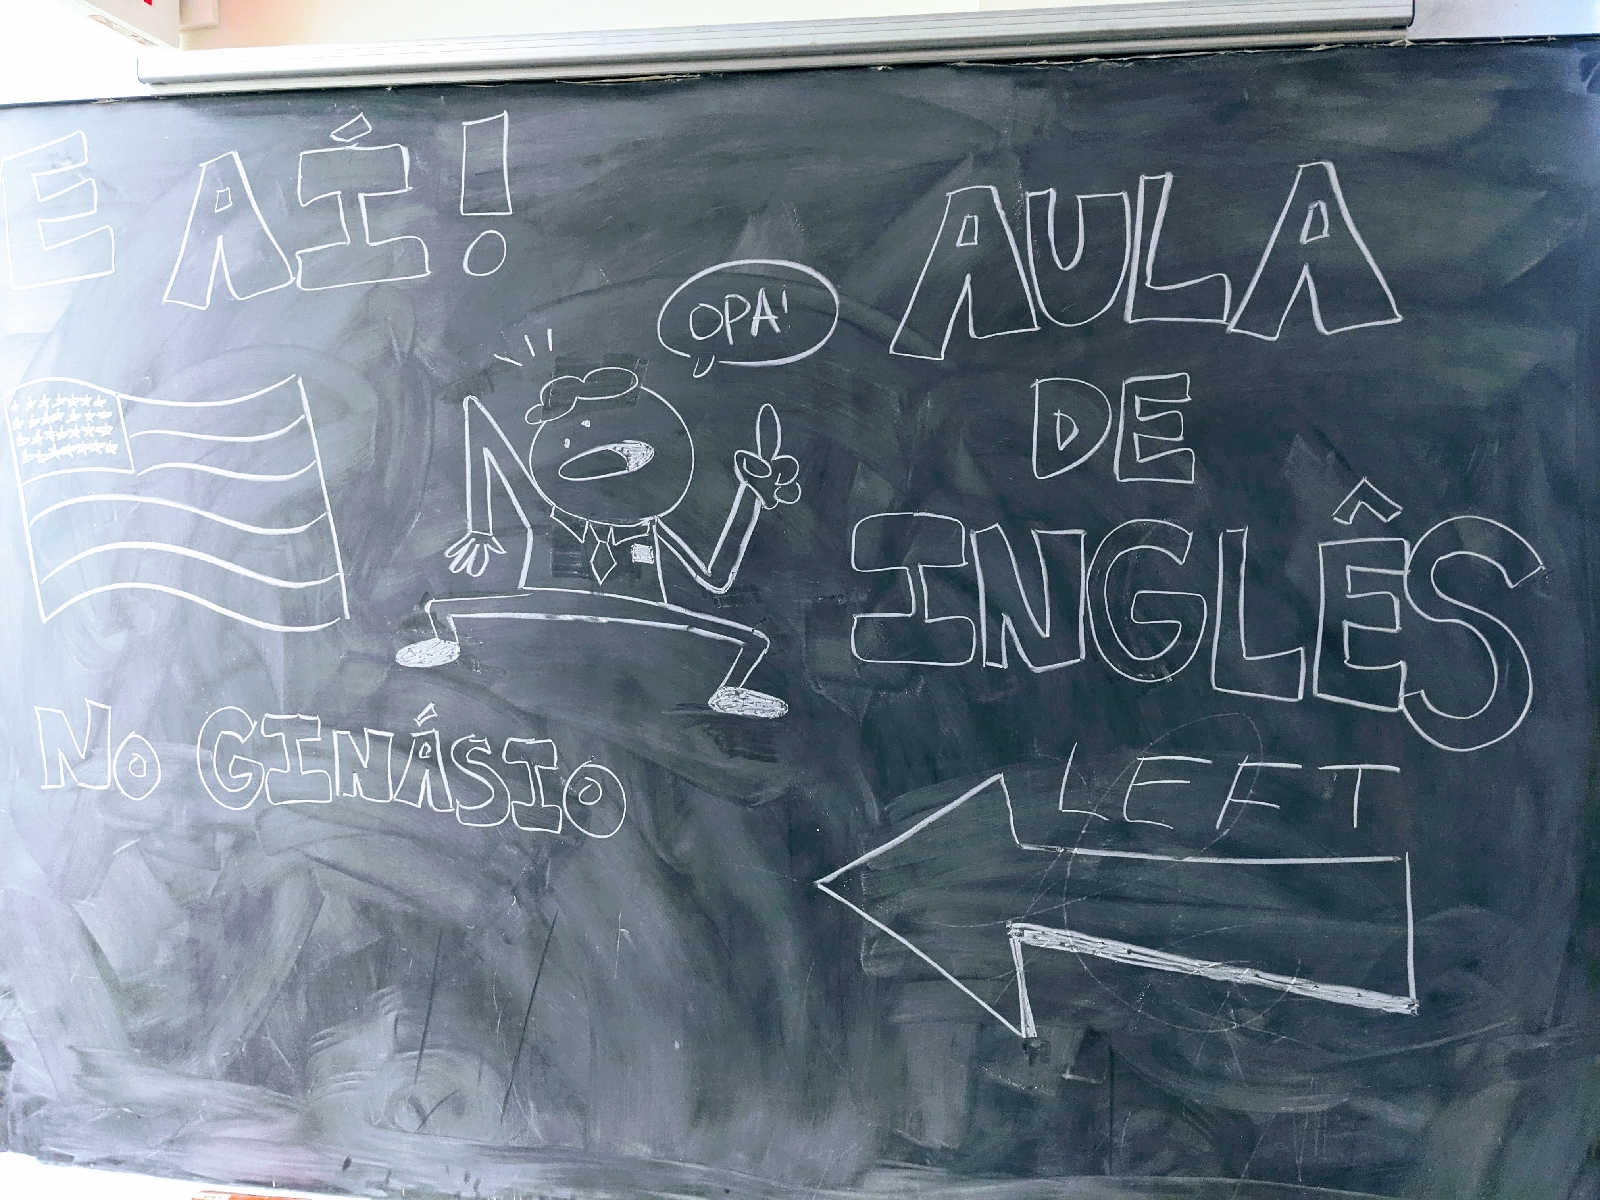 E AÍ!
OPA!
AULA
DE
INGLÊS
NO GINÁSIO
LEFT